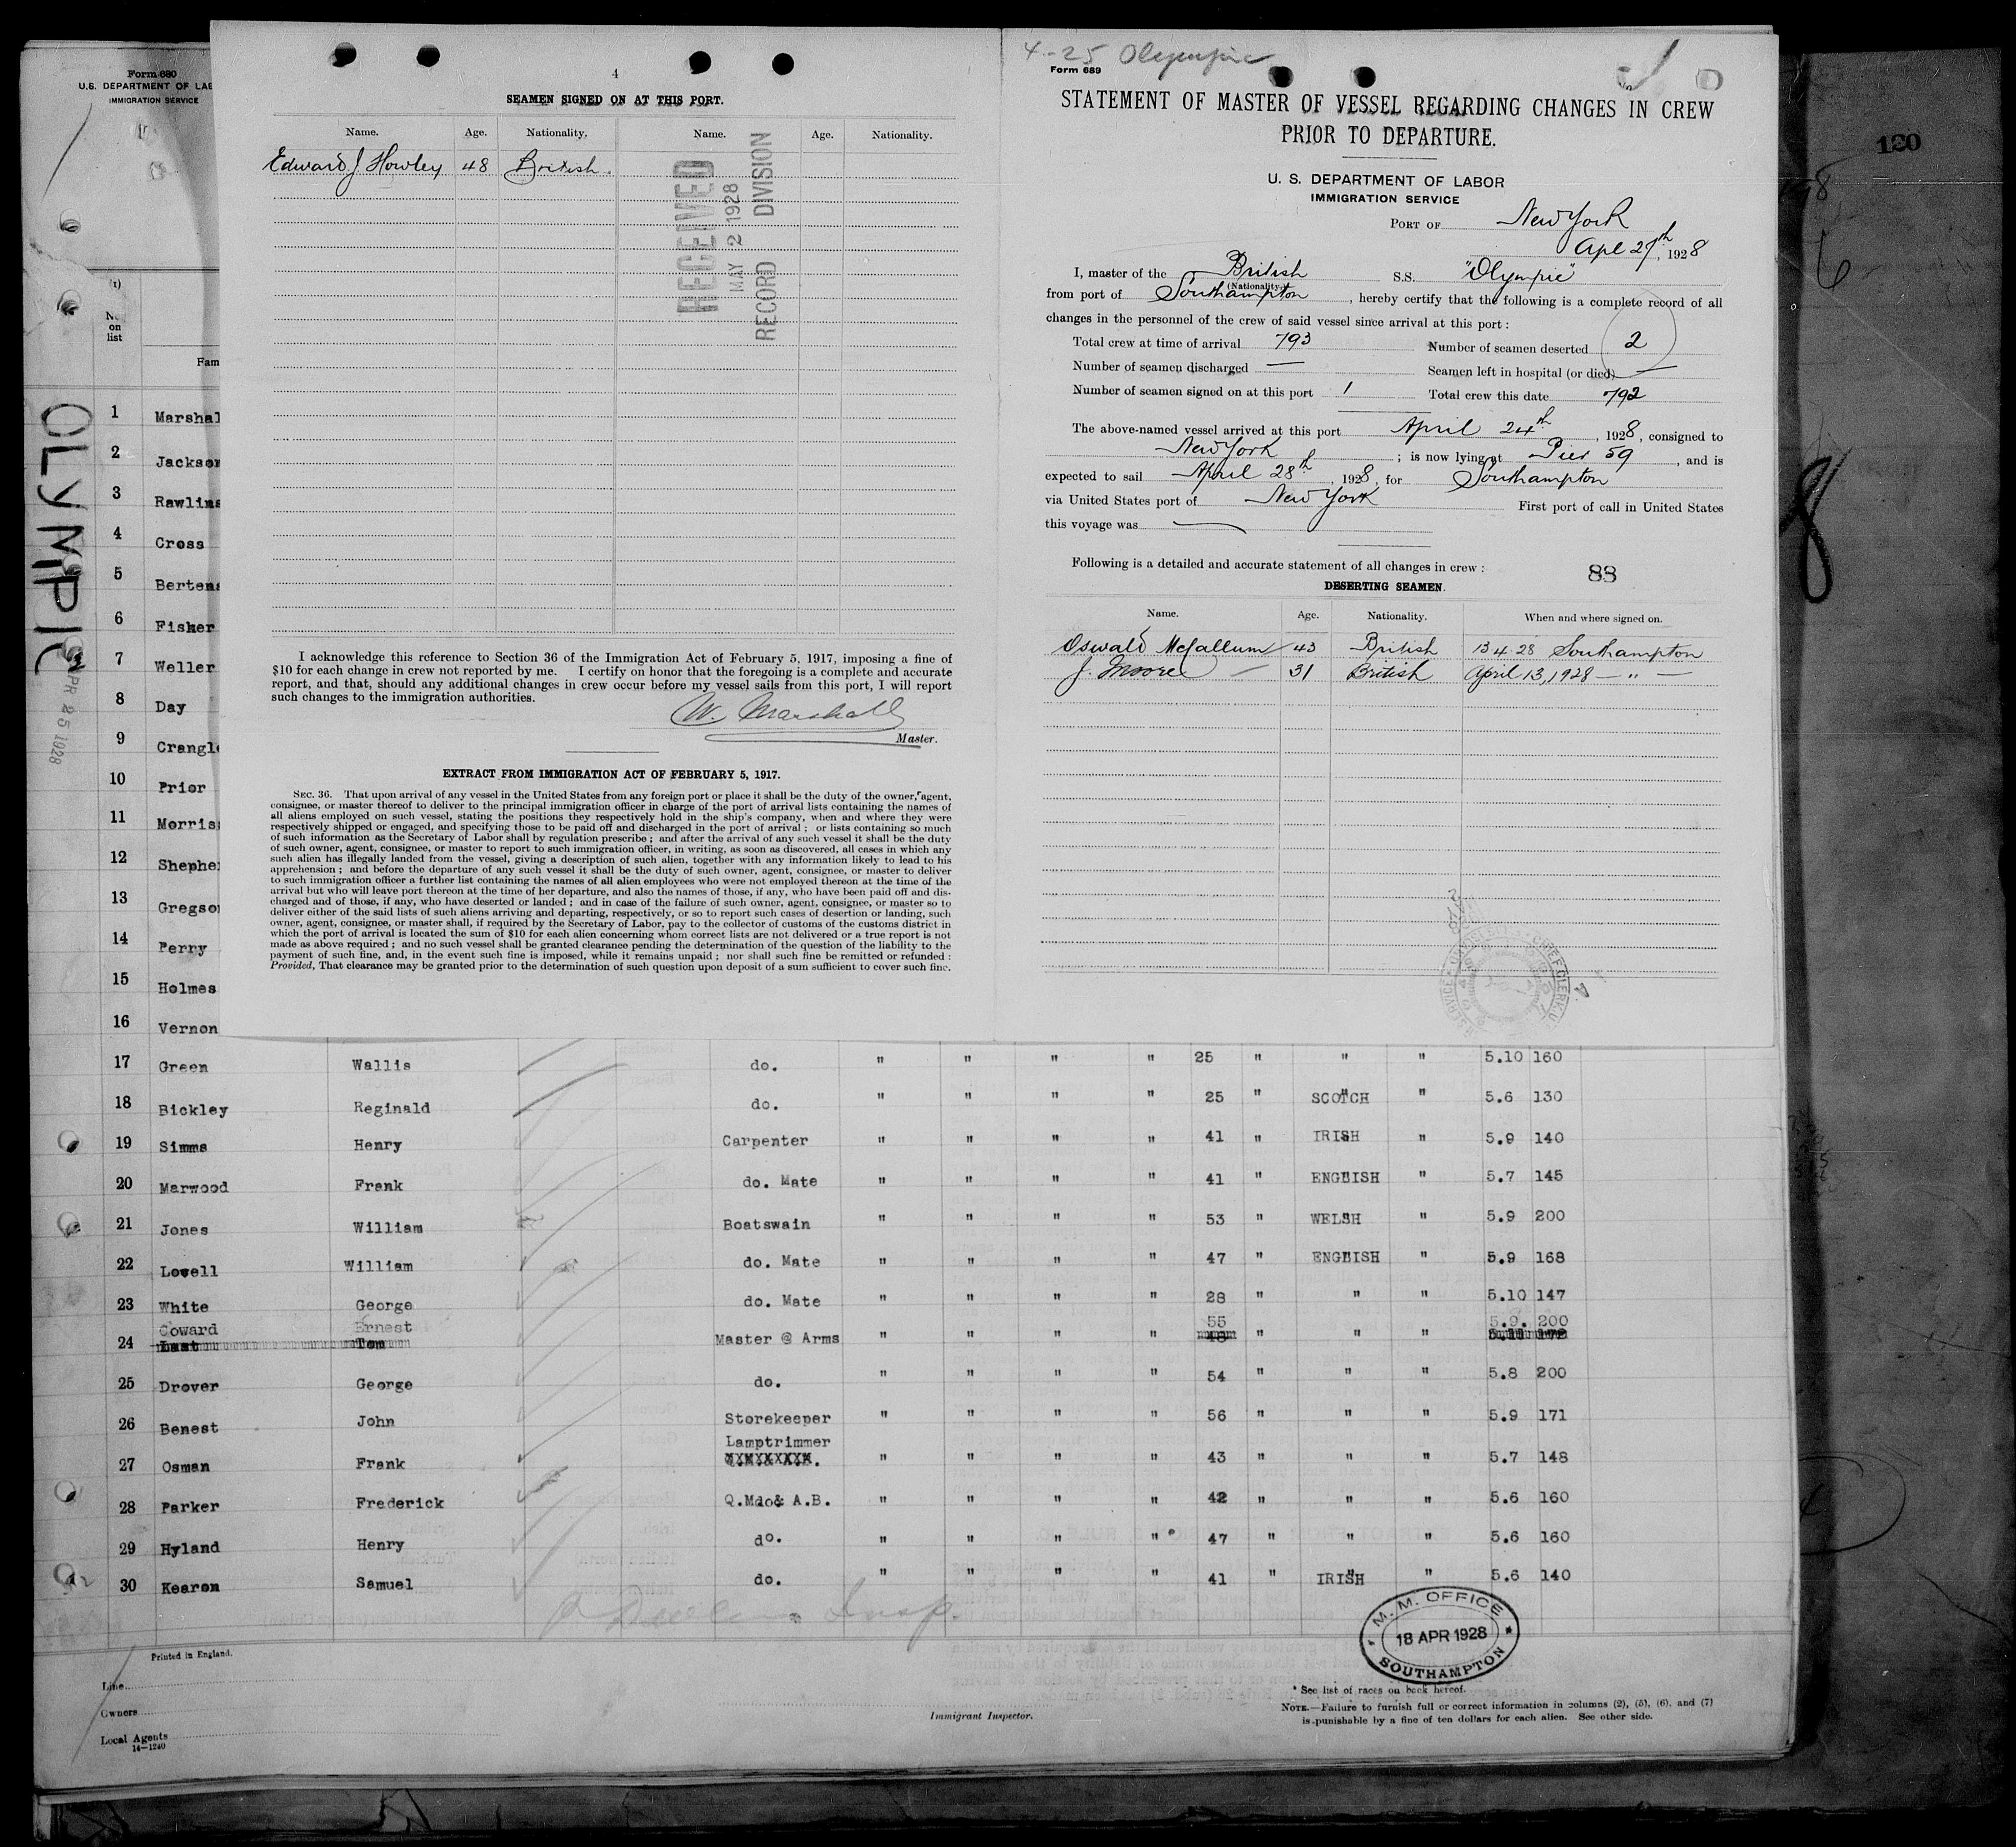 4-25 Olympic
Form 689
STATEMENT OF MASTER OF VESSEL REGARDING CHANGES IN CREW
PRIOR TO DEPARTURE.
U. S. DEPARTMENT OF LABOR
IMMIGRATION SERVICE
PORT OF New York
Apl 27th, 1928
I, master of the British S.S. "Olympic"
(Nationality)
from port of Southampton, hereby certify that the following is a complete record of all
changes in the personnel of the crew of said vessel since arrival at this port:
Total crew at time of arrival 793 Number of seamen deserted 2
Number of seamen discharged — Seamen left in hospital (or died) —
Number of seamen signed on at this port 1 Total crew this date 792
The above-named vessel arrived at this port April 24th, 1928, consigned to
New York; is now lying at Pier 59, and is
expected to sail April 28th, 1928, for Southampton
via United States port of New York First port of call in United States
this voyage was —
Following is a detailed and accurate statement of all changes in crew: 88
DESERTING SEAMEN.
Name. Age. Nationality. When and where signed on.
Oswald McCallum 43 British 13 4 28 Southampton
J. Moore — 31 British April 13, 1928 — " —
4
SEAMEN SIGNED ON AT THIS PORT.
Name. Age. Nationality. Name. Age. Nationality.
Edward J Howley 48 British.
RECEIVED
MAY 2 1928
RECORD DIVISION
I acknowledge this reference to Section 36 of the Immigration Act of February 5, 1917, imposing a fine of
$10 for each change in crew not reported by me. I certify on honor that the foregoing is a complete and accurate
report, and that, should any additional changes in crew occur before my vessel sails from this port, I will report
such changes to the immigration authorities.
W. Marshall
Master.
EXTRACT FROM IMMIGRATION ACT OF FEBRUARY 5, 1917.
SEC. 36. That upon arrival of any vessel in the United States from any foreign port or place it shall be the duty of the owner, agent,
consignee, or master thereof to deliver to the principal immigration officer in charge of the port of arrival lists containing the names of
all aliens employed on such vessel, stating the positions they respectively hold in the ship's company, when and where they were
respectively shipped or engaged, and specifying those to be paid off and discharged in the port of arrival; or lists containing so much
of such information as the Secretary of Labor shall by regulation prescribe; and after the arrival of any such vessel it shall be the duty
of such owner, agent, consignee, or master to report to such immigration officer, in writing, as soon as discovered, all cases in which any
such alien has illegally landed from the vessel, giving a description of such alien, together with any information likely to lead to his
apprehension; and before the departure of any such vessel it shall be the duty of such owner, agent, consignee, or master to deliver
to such immigration officer a further list containing the names of all alien employees who were not employed thereon at the time of the
arrival but who will leave port thereon at the time of her departure, and also the names of those, if any, who have been paid off and dis-
charged and of those, if any, who have deserted or landed; and in case of the failure of such owner, agent, consignee, or master so to
deliver either of the said lists of such aliens arriving and departing, respectively, or so to report such cases of desertion or landing, such
owner, agent, consignee, or master shall, if required by the Secretary of Labor, pay to the collector of customs of the customs district in
which the port of arrival is located the sum of $10 for each alien concerning whom correct lists are not delivered or a true report is not
made as above required; and no such vessel shall be granted clearance pending the determination of the question of the liability to the
payment of such fine, and, in the event such fine is imposed, while it remains unpaid; nor shall such fine be remitted or refunded:
Provided, That clearance may be granted prior to the determination of such question upon deposit of a sum sufficient to cover such fine.
Form 680
U.S. DEPARTMENT OF LAB
IMMIGRATION SERVICE
(1)
No. on list
Fam
OLYMPIC
APR 25 1928
120
8
1 Marshal
2 Jackson
3 Rawlins
4 Cross
5 Bertens
6 Fisher
7 Weller
8 Day
9 Crangle
10 Prior
11 Morris
12 Shepher
13 Gregson
14 Perry
15 Holmes
16 Vernon
17 Green Wallis do. " " " " 25 " " " 5.10 160
18 Bickley Reginald do. " " " " 25 " SCOTCH " 5.6 130
19 Simms Henry Carpenter " " " " 41 " IRISH " 5.9 140
20 Marwood Frank do. Mate " " " " 41 " ENGLISH " 5.7 145
21 Jones William Boatswain " " " " 53 " WELSH " 5.9 200
22 Lovell William do. Mate " " " " 47 " ENGLISH " 5.9 168
23 White George do. Mate " " " " 28 " " " 5.10 147
Coward Ernest 55 5.9. 200
24 Last Tom Master @ Arms " " " " 48 " " "
25 Drover George do. " " " " 54 " " " 5.8 200
26 Benest John Storekeeper " " " " 56 " " " 5.9 171
Lamptrimmer
27 Osman Frank " " " " 43 " " " 5.7 148
28 Parker Frederick Q.Mdo& A.B. " " " " 42 " " " 5.6 160
29 Hyland Henry do. " " " " 47 " " " 5.6 160
30 Kearon Samuel do. " " " " 41 " IRISH " 5.6 140
Insp.
M. M. OFFICE
18 APR 1928
SOUTHAMPTON
Printed in England.
Line
Owners
Local Agents
14—1240
Immigrant Inspector.
* See list of races on back hereof.
NOTE.—Failure to furnish full or correct information in columns (2), (5), (6), and (7)
is punishable by a fine of ten dollars for each alien. See other side.